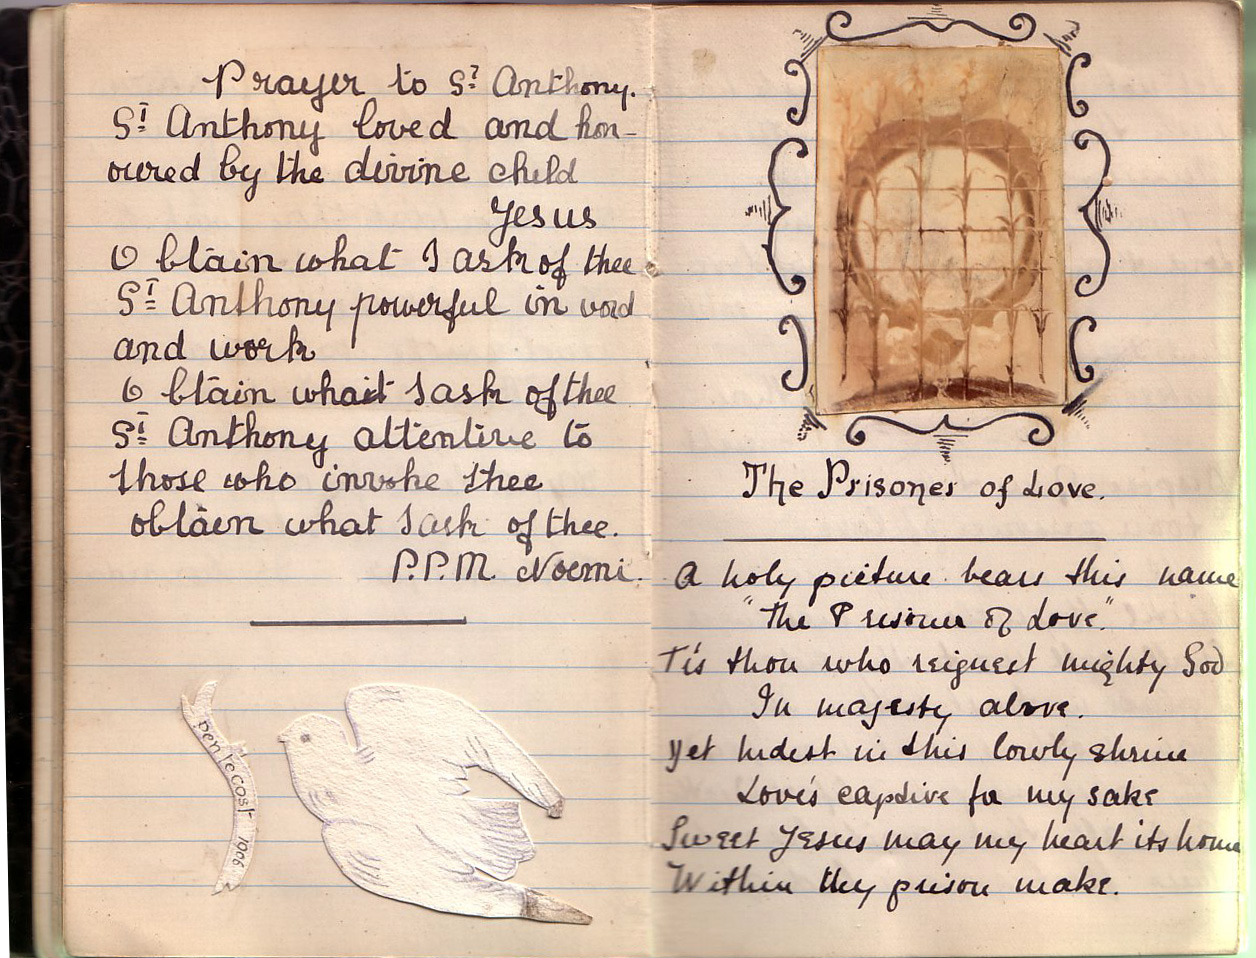 Prayer to St Anthony.
St Anthony loved and hon-
oured by the divine child
Jesus
O btain what I ask of thee
St Anthony powerful in word
and work
O btain what I ask of thee
St Anthony attentive to
those who invoke thee
obtain what I ask of thee.
P.P.M. Noemi.
Pentecost 1906
The Prisoner of Love.
A holy picture bears this name
"The Prisoner of Love".
Tis thou who reignest mighty God
In majesty above.
Yet hidest in this lowly shrine
Love's captive for my sake
Sweet Jesus may my heart its home
Within thy prison make.